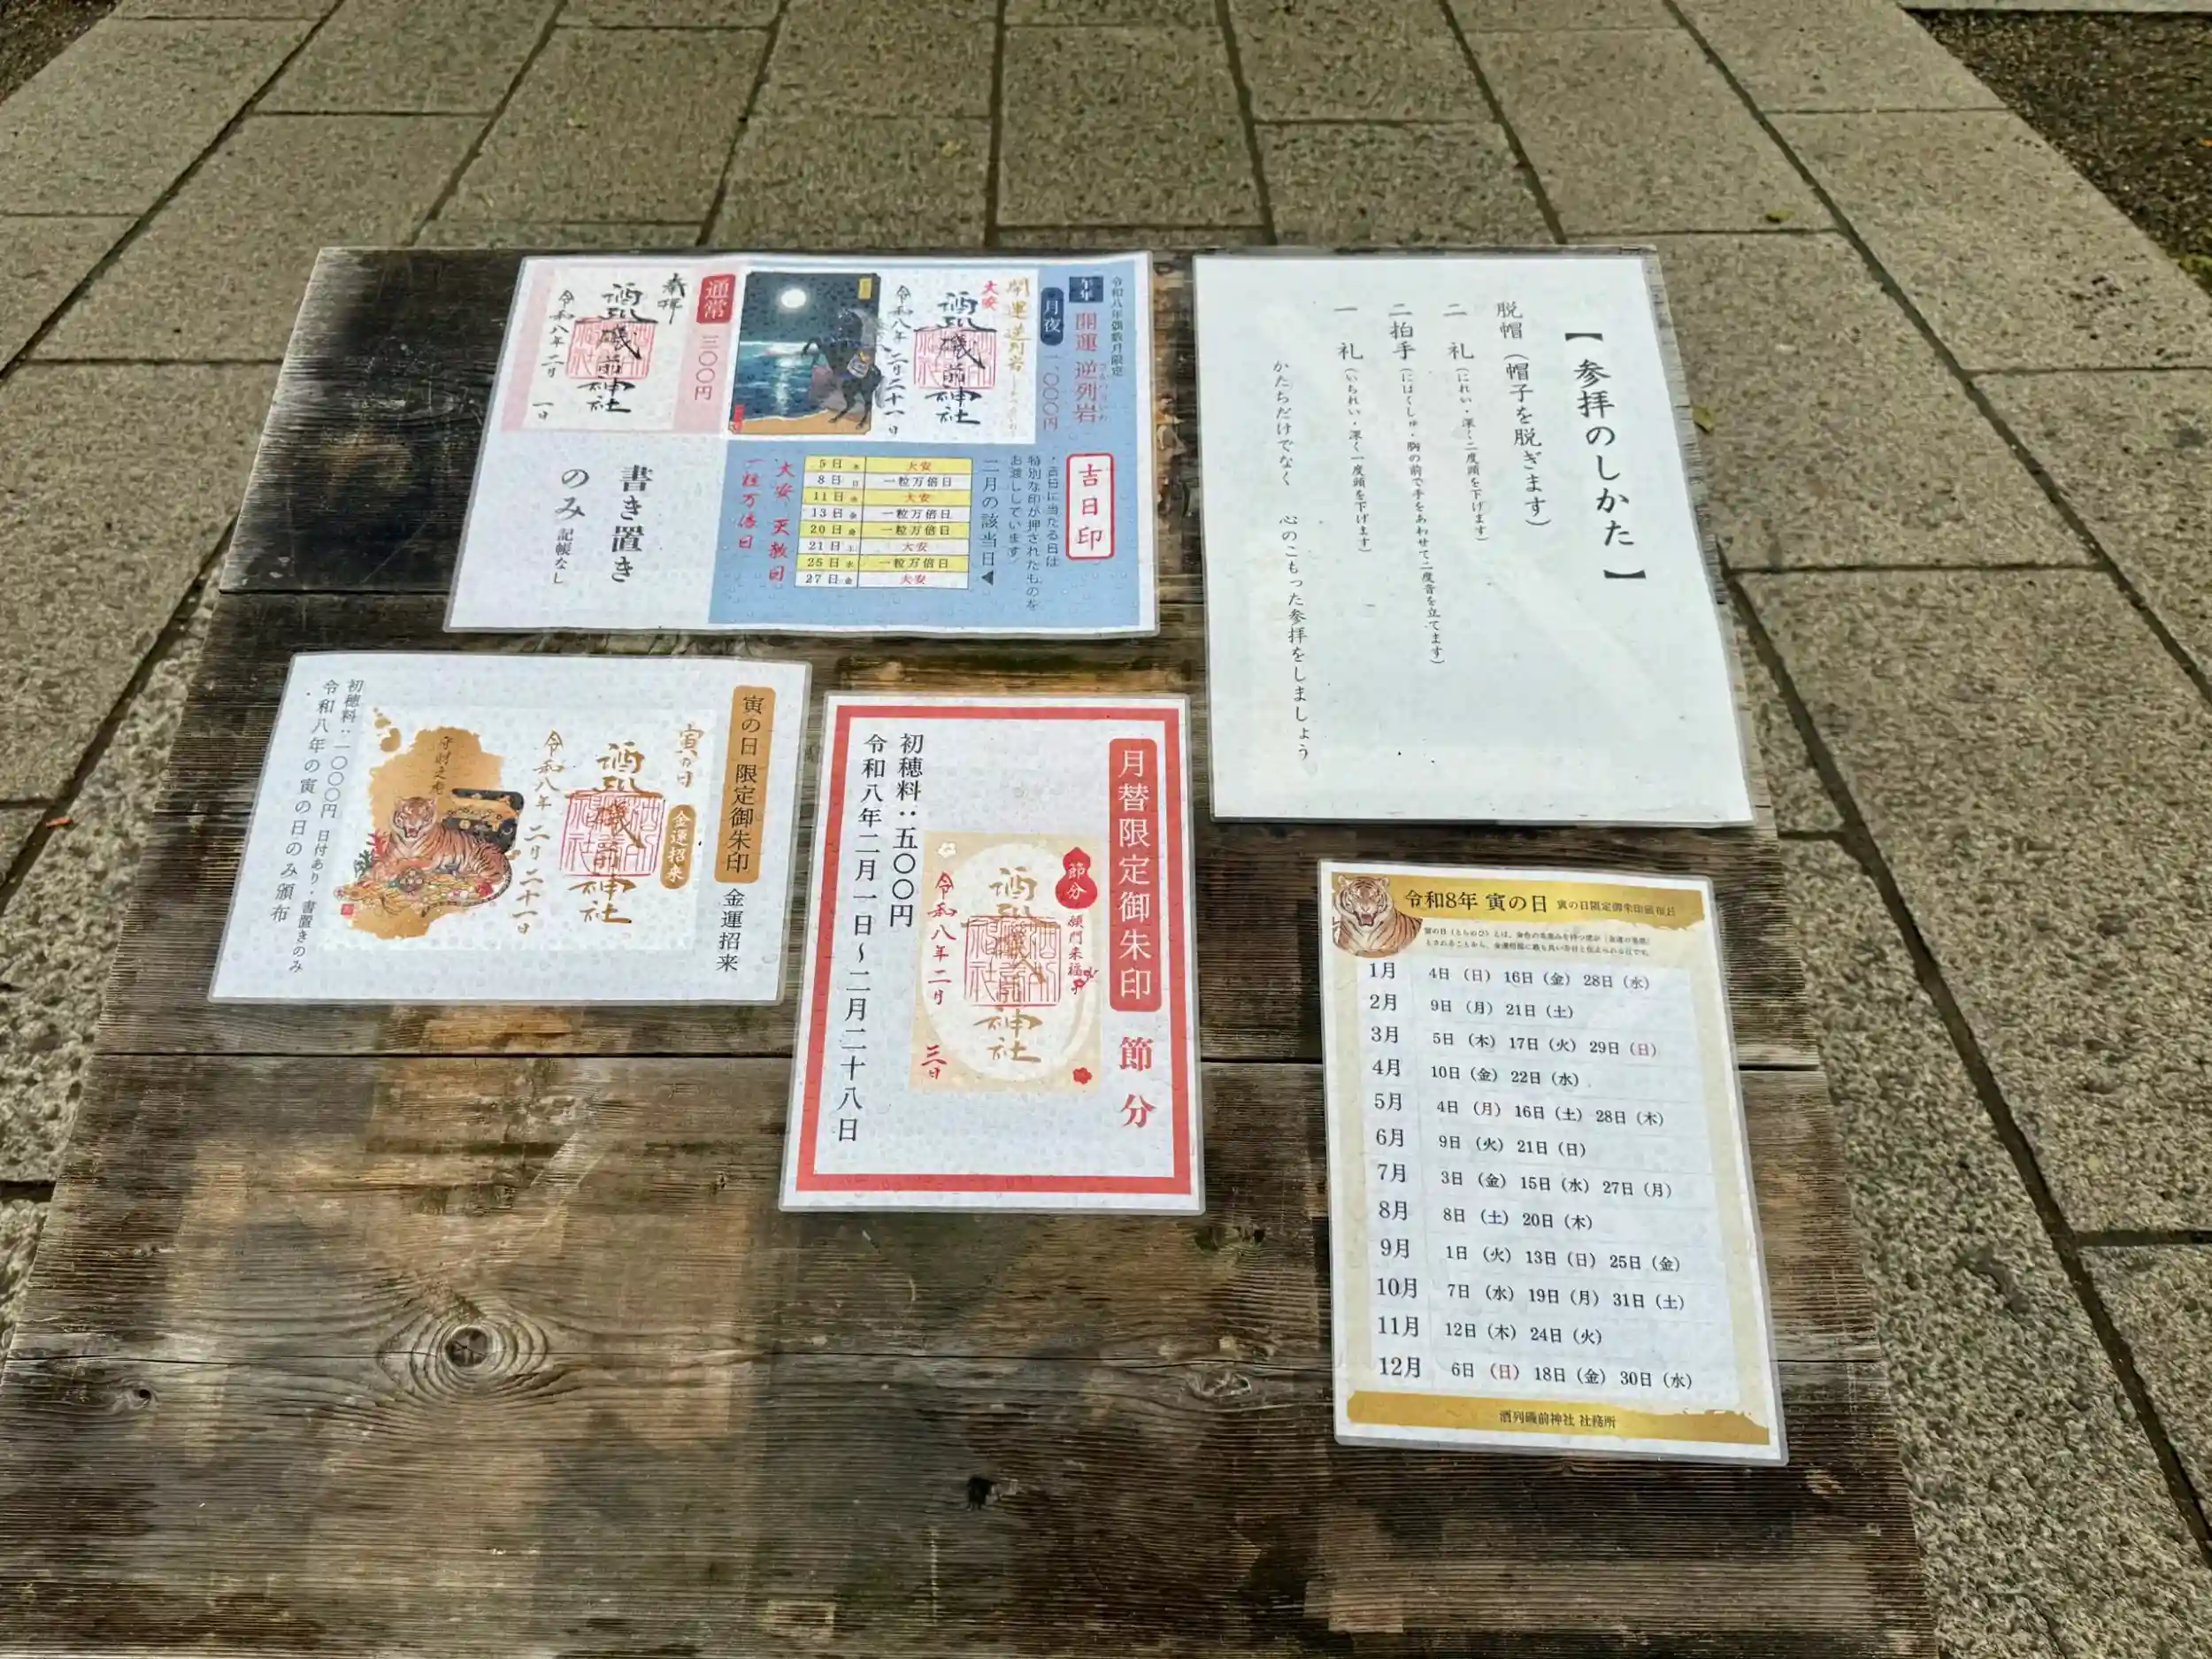 令和八年偶数月限定
午年
開運 逆列岩
さかつらいわ
月夜
一、〇〇〇円
開運逆列岩
大安
酒列磯前神社
令和八年二月二十一日
通常
三〇〇円
奉拝
酒列磯前神社
令和八年二月 一日
吉日印
・吉日に当たる日は
特別な印が押されたものを
お渡ししています
二月の該当日◀
5日 木 大安
8日 日 一粒万倍日
11日 水 大安
13日 金 一粒万倍日
20日 金 一粒万倍日
21日 土 大安
25日 水 一粒万倍日
27日 金 大安
大安 天赦日
一粒万倍日
書き置き
のみ 記帳なし
【参拝のしかた】
脱帽（帽子を脱ぎます）
二 礼（にれい・深く二度頭を下げます）
二拍手（にはくしゅ・胸の前で手をあわせて二度音を立てます）
一 礼（いちれい・深く一度頭を下げます）
かたちだけでなく 心のこもった参拝をしましょう
寅の日 限定御朱印 金運招来
寅の日
金運招来
酒列磯前神社
令和八年 二月 二十一日
守財之虎
初穂料：一〇〇〇円 日付あり・書置きのみ
令和八年の寅の日のみ頒布
月替限定御朱印 節分
節分
酒列磯前神社
令和八年二月 三日
初穂料：五〇〇円
令和八年二月一日～二月二十八日
令和8年 寅の日 寅の日限定御朱印頒布日
1月 4日（日） 16日（金） 28日（水）
2月 9日（月） 21日（土）
3月 5日（木） 17日（火） 29日（日）
4月 10日（金） 22日（水）
5月 4日（月） 16日（土） 28日（木）
6月 9日（火） 21日（日）
7月 3日（金） 15日（水） 27日（月）
8月 8日（土） 20日（木）
9月 1日（火） 13日（日） 25日（金）
10月 7日（水） 19日（月） 31日（土）
11月 12日（木） 24日（火）
12月 6日（日） 18日（金） 30日（水）
酒列磯前神社 社務所